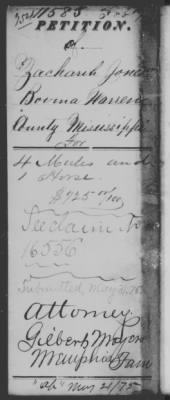 11585
PETITION.
of
Zachariah Jones
Bovina Warren
County Mississippi
For
4 Mules and
1 Horse.
$725 00/100
See claim No
16556
Submitted May 21/75
Attorney
Gilbert Moyers
Memphis Tenn
May 21/75